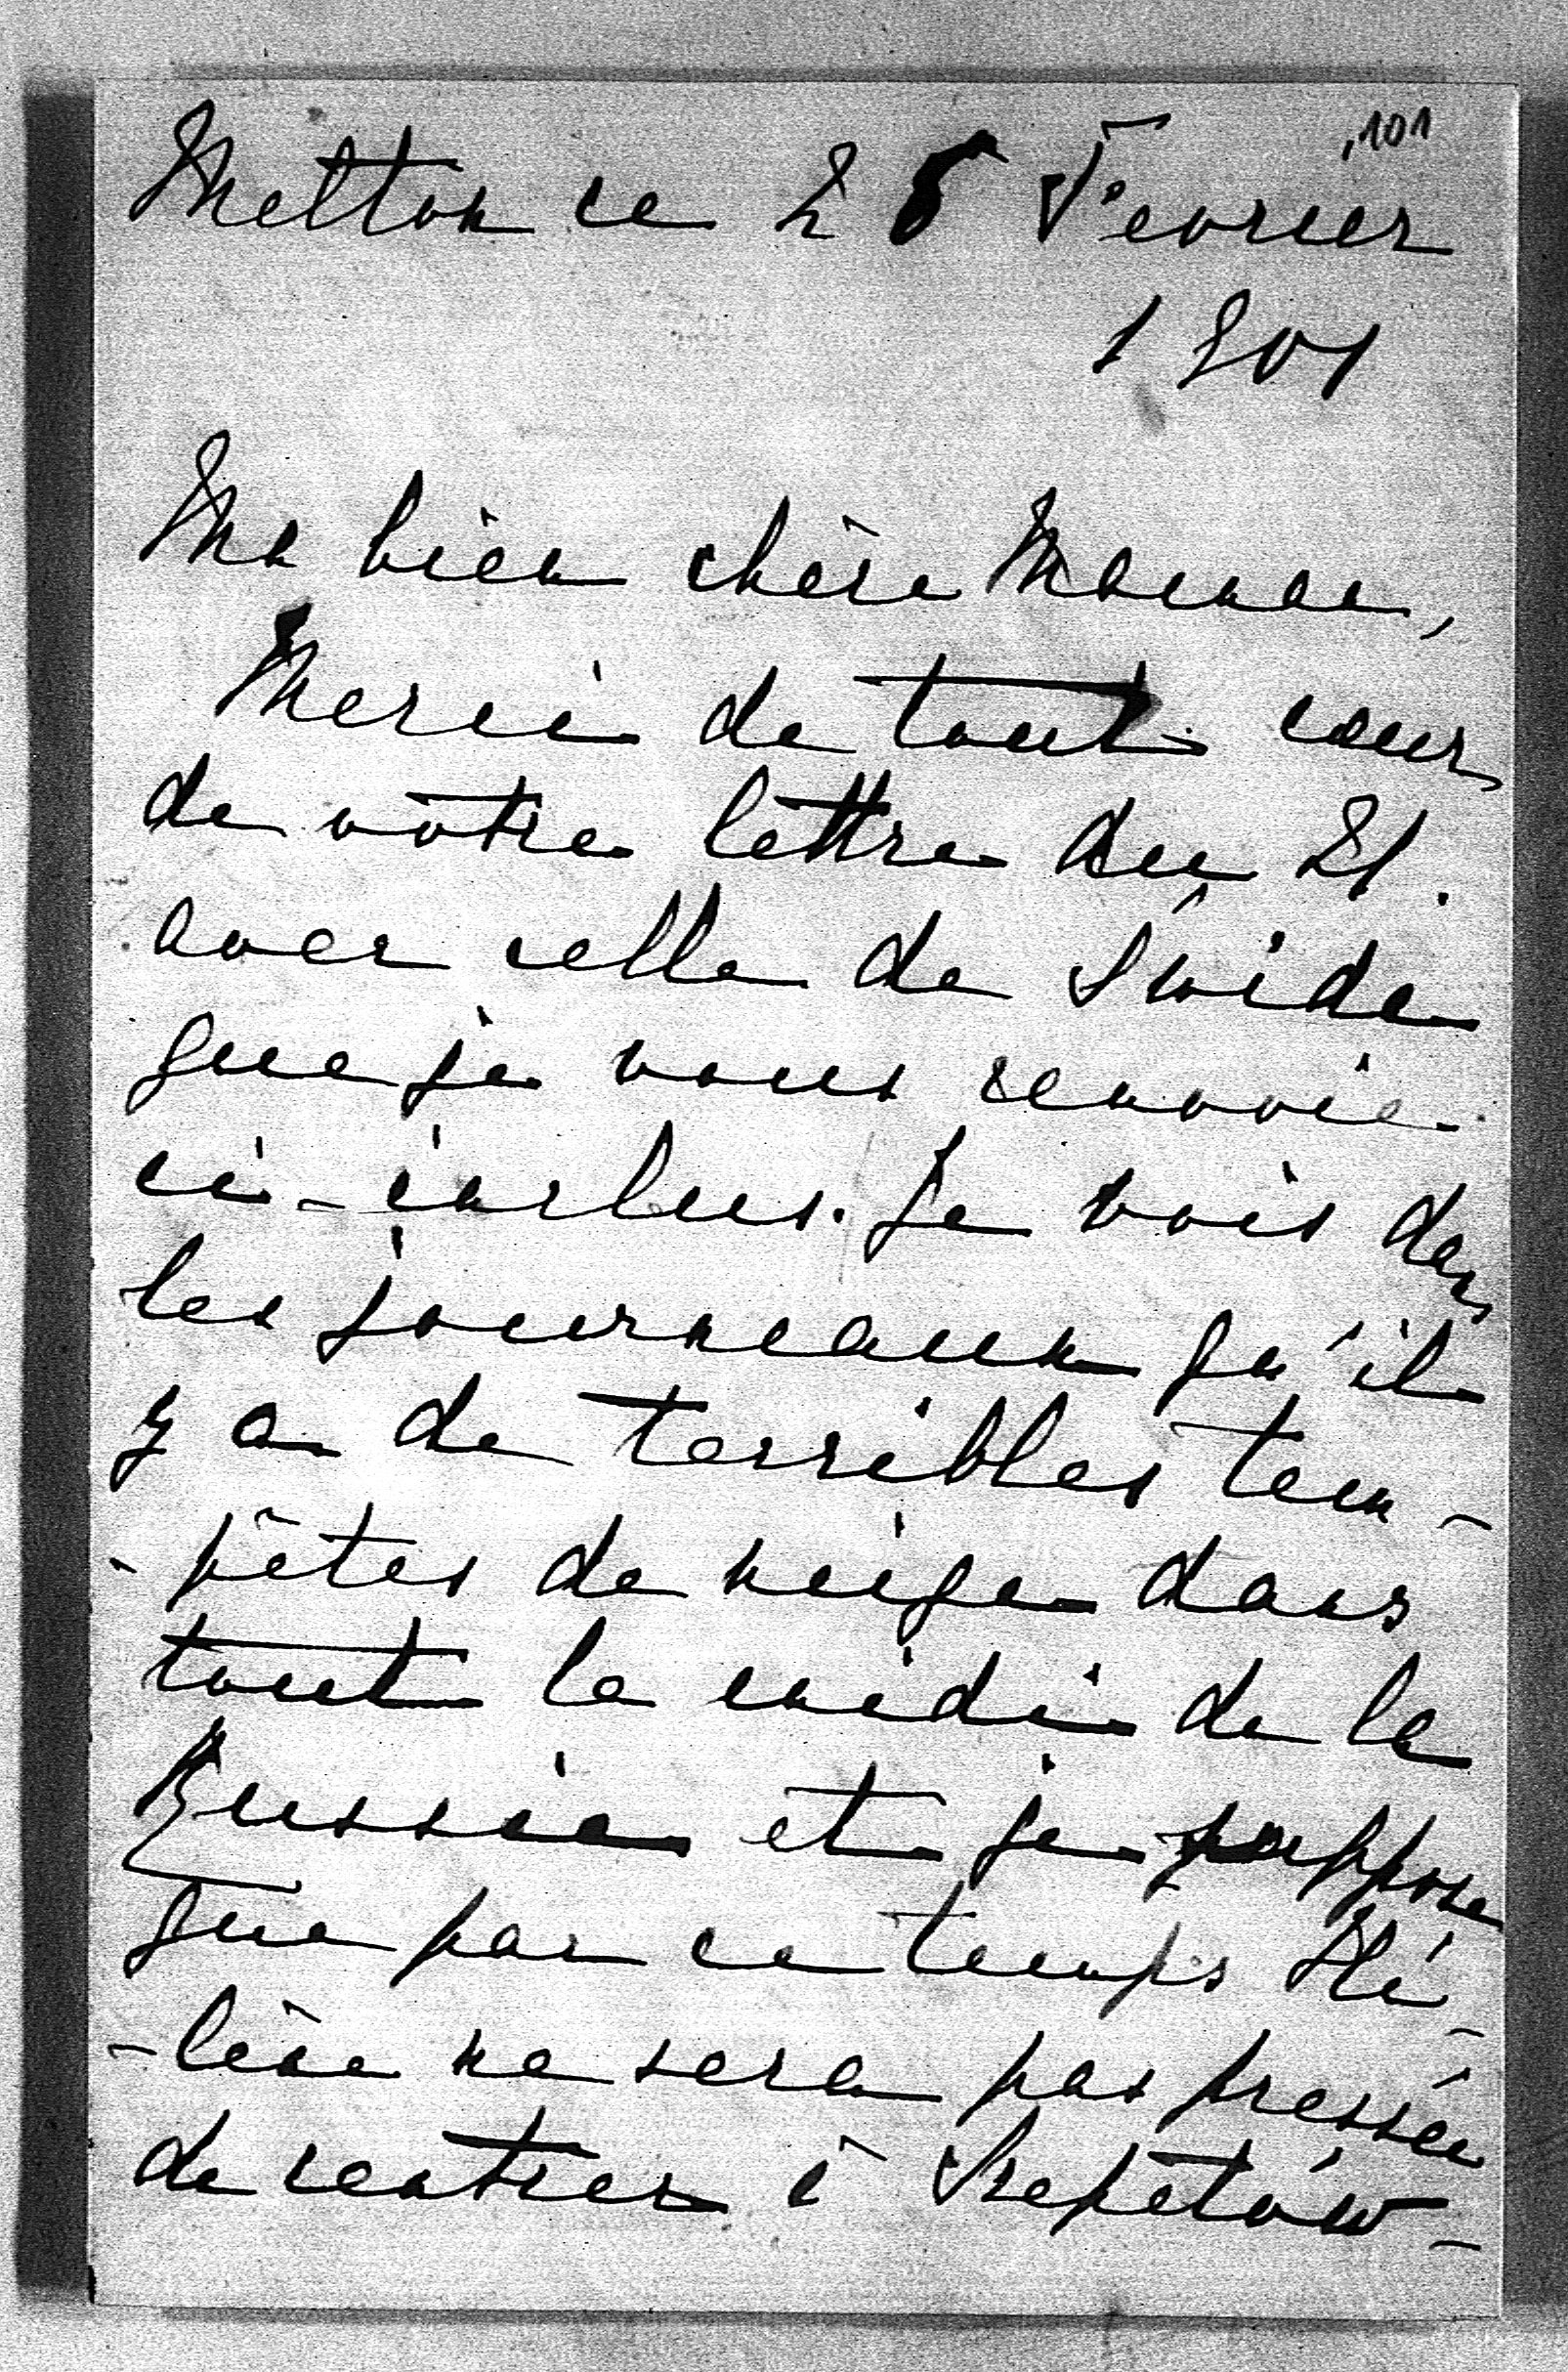 101
Melton ce 25 Février
1901
Ma bien chère Maman,
Merci de tout cœur
de votre lettre du 21.
avec celle de
que je vous renvoie
ci-inclus. Je vois dans
les journaux qu'il
y a de terribles tem-
-pêtes de neige dans
tout le midi de la
Russie et je suppose
que par ce temps Hé-
-lène ne sera pas pressée
de rentrer à Szepetów-